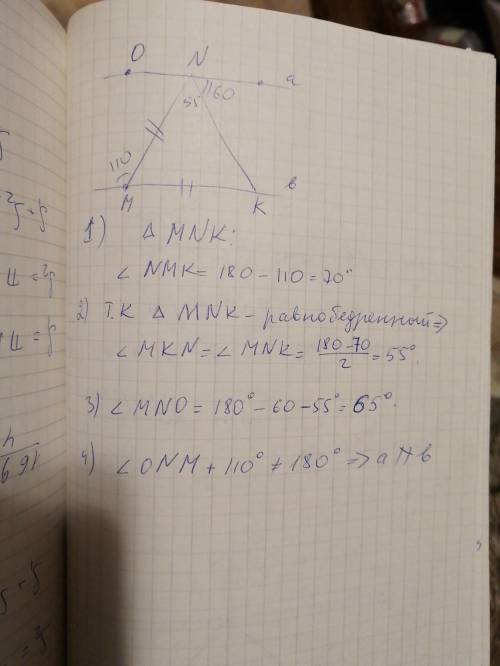 O N a
55 60
110
M K b
1) △ MNK:
∠ NMK = 180 - 110 = 70°
2) Т.К △ MNK - равнобедренный =>
∠ MKN = ∠ MNK = (180-70)/2 = 55°.
3) ∠ MNO = 180° - 60 - 55° = 65°.
4) ∠ ONM + 110° ≠ 180° => a ∦ b